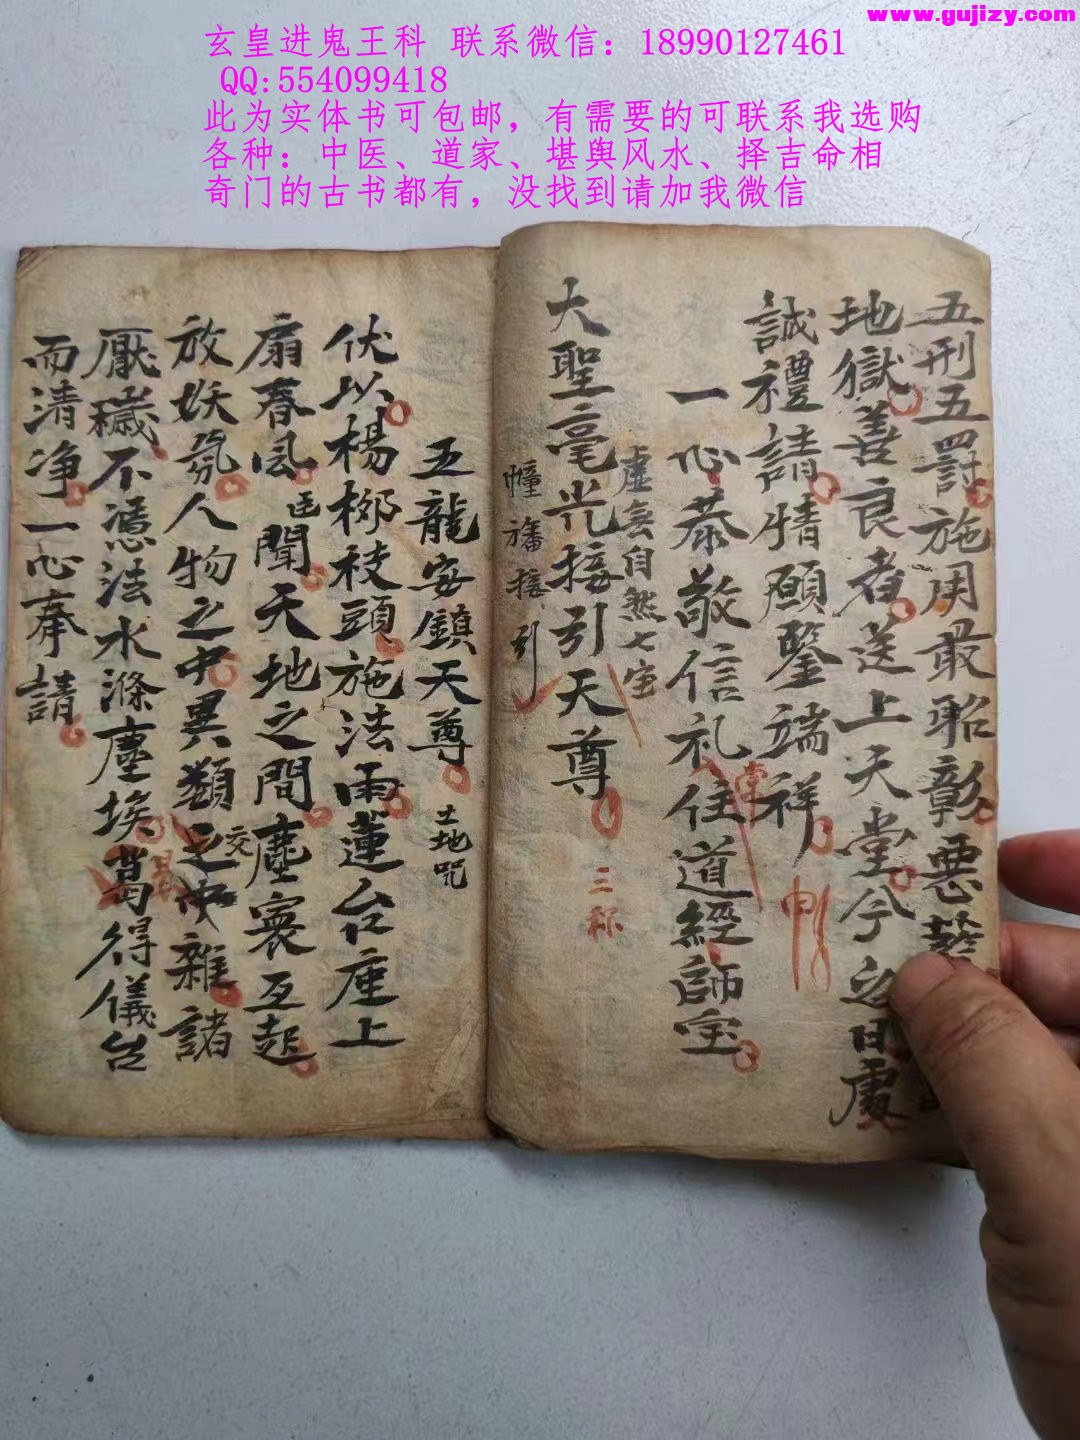 www.gujizy.com
玄皇进鬼王科 联系微信：18990127461
QQ:554099418
此为实体书可包邮，有需要的可联系我选购
各种：中医、道家、堪舆风水、择吉命相
奇门的古书都有，没找到请加我微信
五刑五罰施用最昭彰惡
地獄善良者送上天堂今之日處
誠禮請情願鑒端祥
一心恭敬信礼住道經師宝
虛無自然七宝
大聖毫光接引天尊
三杯
幢旛接引
五龍安鎮天尊 土地咒
伏以楊柳枝頭施法雨蓮台座上
扇春风叵聞天地之間塵寰互起
放妖氛人物之中異類之交中雜諸
厭穢不憑法水滌塵埃曷得儀台
而清净一心奉請